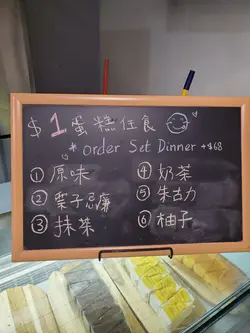 $1蛋糕任食
* order Set Dinner +$68
① 原味
② 栗子忌廉
③ 抹茶
④ 奶茶
⑤ 朱古力
⑥ 柚子